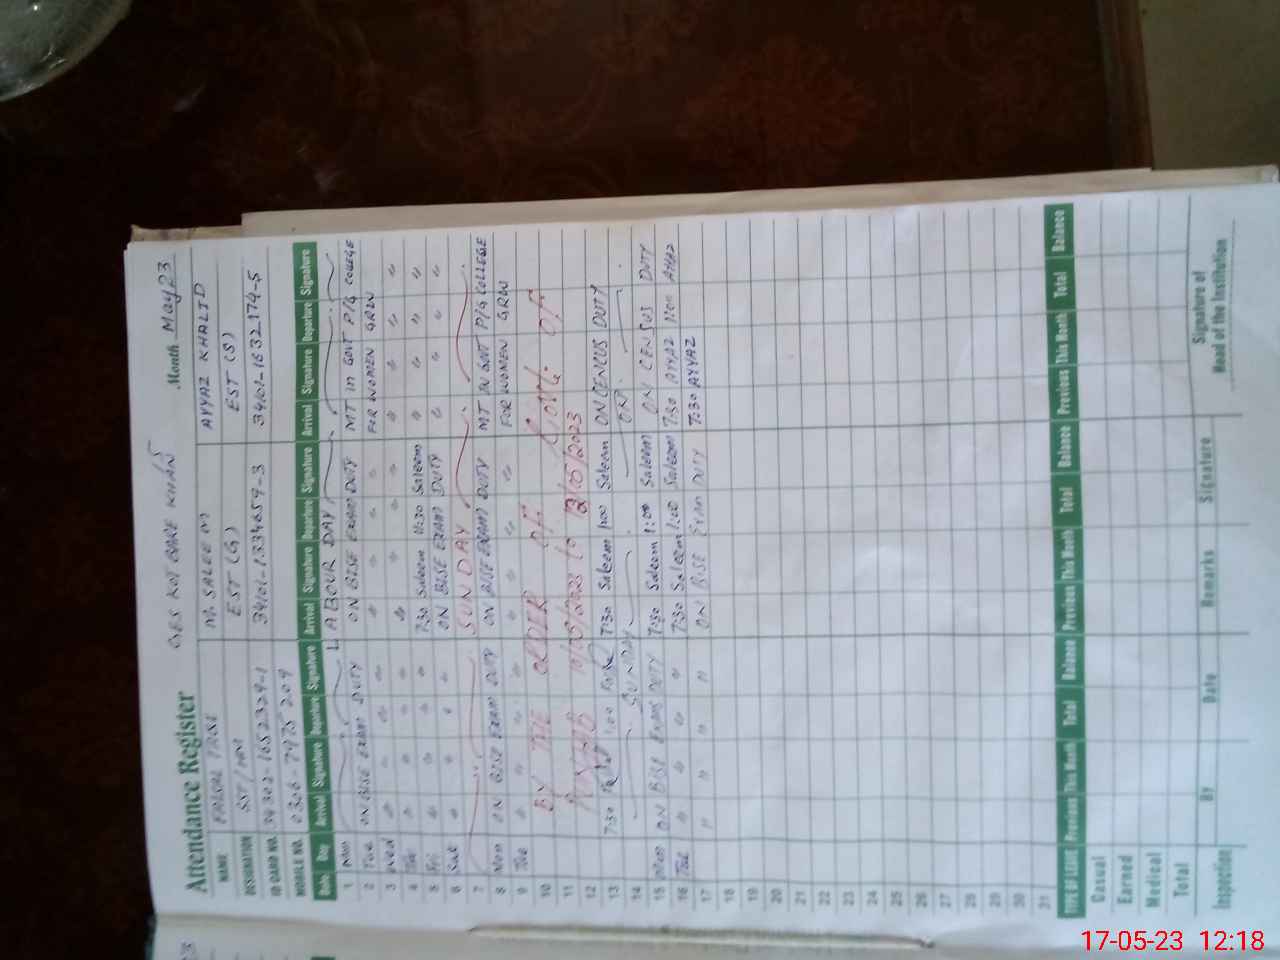 Attendance Register GES KOT BARE KHAN Month May 23
NAME FAISAL M. SALEEM AYYAZ KHALID
DESIGNATION SST EST (G) EST (S)
ID CARD NO. 34101-1334659-3 34101-1632174-5
MOBILE NO.
Date Day Arrival Signature Departure Signature Arrival Signature Departure Signature Arrival Signature Departure Signature
1 Mon LABOUR DAY
2 Tue ON BISE EXAM DUTY ON BISE EXAM DUTY MT in GOVT P/G COLLEGE
3 Wed " " " " " " " " FOR WOMEN GRW
4 " " " " " " " " " "
5 Fri " " " " 7:30 Saleem 11:30 Saleem " " " "
6 Sat " " " ON BISE EXAM DUTY " " " "
7 SUNDAY
8 Mon ON BISE EXAM DUTY ON BISE EXAM DUTY MT IN GOVT P/G COLLEGE
9 Tue " " " " " " " FOR WOMEN GRW
10 BY THE ORDER OF Govt. OF
11 PUNJAB 10/05/2023 to 13/05/2023
12
13 7:30 1:00 7:30 Saleem 1:00 Saleem ON CENCUS DUTY
14 SUNDAY
15 Mon ON BISE EXAM DUTY 7:30 Saleem 1:00 Saleem ON CENSUS DUTY
16 Tue " " " " 7:30 Saleem 1:00 Saleem 7:30 AYYAZ 1:00 AYYAZ
17 " " " " ON BISE EXAM DUTY 7:30 AYYAZ
18
19
20
21
22
23
24
25
26
27
28
29
30
31
TYPE OF LEAVE Previous This Month Total Balance Previous This Month Total Balance Previous This Month Total Balance
Casual
Earned
Medical
Total
Inspection By Date Remarks Signature Signature of
Head of the Institution
17-05-23 12:18